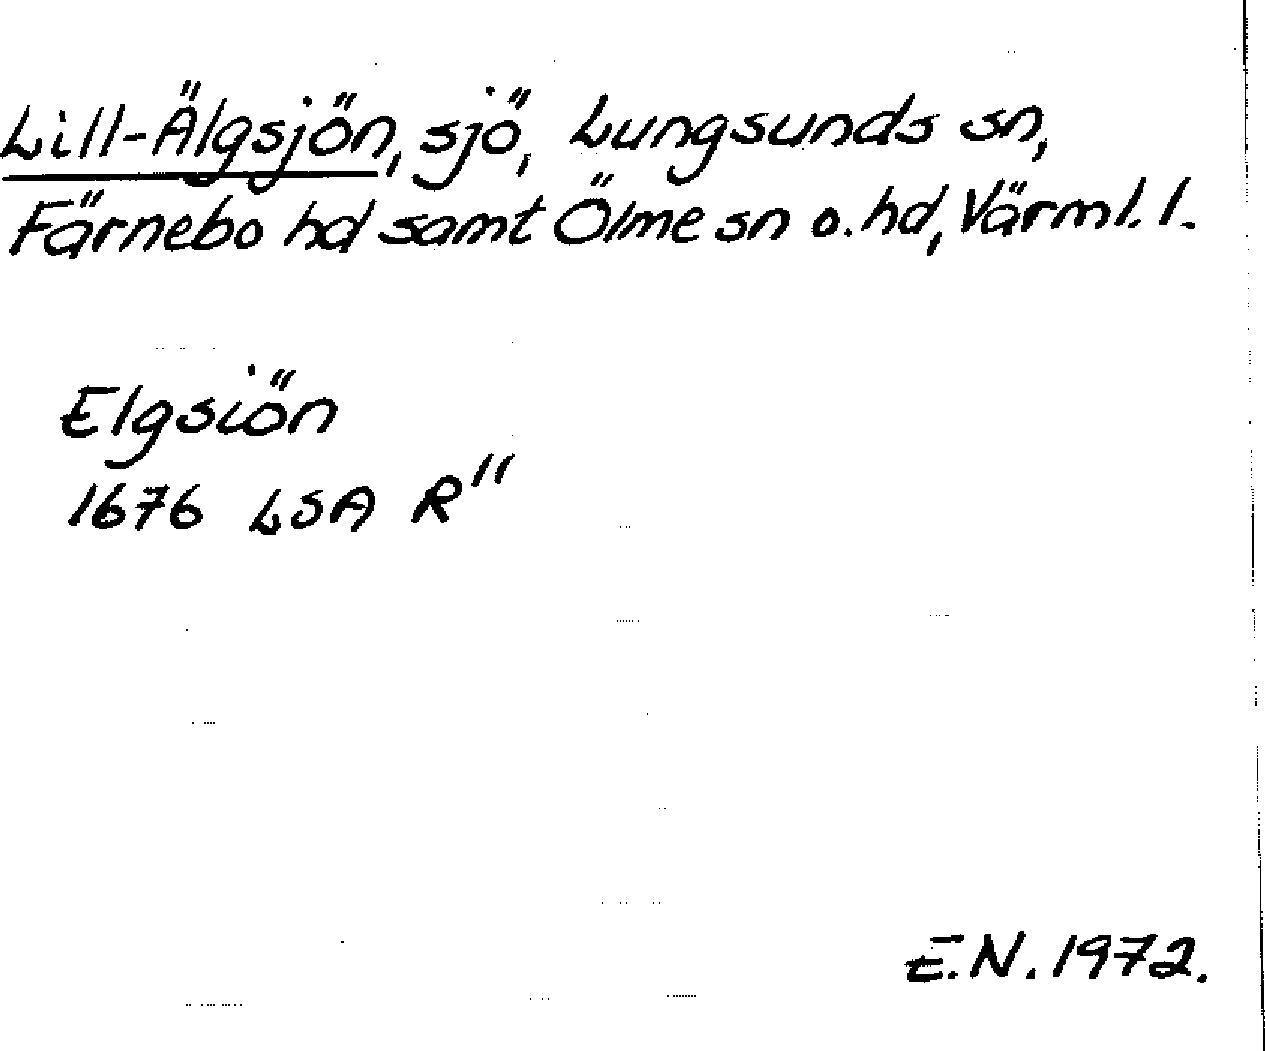 Lill-Älgsjön, sjö, Lungsunds sn,
Färnebo hd samt Ölme sn o. hd, Värml. l.
Elgsiön
1676 LSA R"
E.N. 1972.